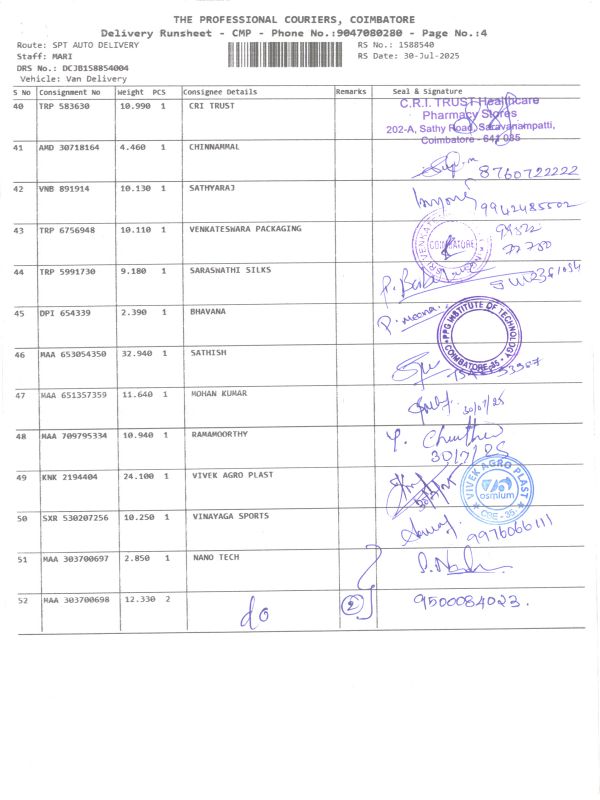 THE PROFESSIONAL COURIERS, COIMBATORE
Delivery Runsheet - CMP - Phone No.:9047080280 - Page No.:4
Route: SPT AUTO DELIVERY
RS No.: 1588540
Staff: MARI
RS Date: 30-Jul-2025
DRS No.: DCJB158854004
Vehicle: Van Delivery
S No Consignment No Weight PCS Consignee Details Remarks Seal & Signature
40 TRP 583630 10.990 1 CRI TRUST
C.R.I. TRUST Healthcare
Pharmacy Stores
202-A, Sathy Road, Saravanampatti,
Coimbatore - 641 035
41 AMD 30718164 4.460 1 CHINNAMMAL
8760722222
42 VNB 891914 10.130 1 SATHYARAJ
9942485502
43 TRP 6756948 10.110 1 VENKATESWARA PACKAGING
COIMBATORE
44 TRP 5991730 9.180 1 SARASWATHI SILKS
45 DPI 654339 2.390 1 BHAVANA
P. meena
PPG INSTITUTE OF TECHNOLOGY
COIMBATORE-35
46 MAA 653054350 32.940 1 SATHISH
47 MAA 651357359 11.640 1 MOHAN KUMAR
30/07/25
48 MAA 709795334 10.940 1 RAMAMOORTHY
30/7/25
49 KNK 2194404 24.100 1 VIVEK AGRO PLAST
VIVEK AGRO PLAST
osmium
CBE - 35
50 SXR 530207256 10.250 1 VINAYAGA SPORTS
9976066111
51 MAA 303700697 2.850 1 NANO TECH
52 MAA 303700698 12.330 2 do 2 9500084023.